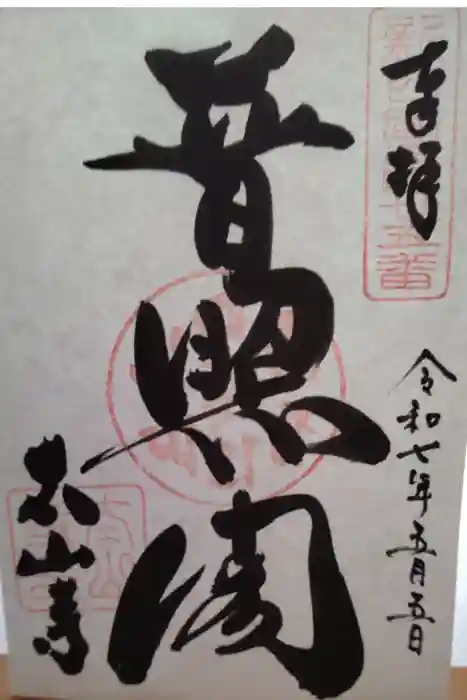 奉拝
普照閣
令和七年五月五日
太山寺